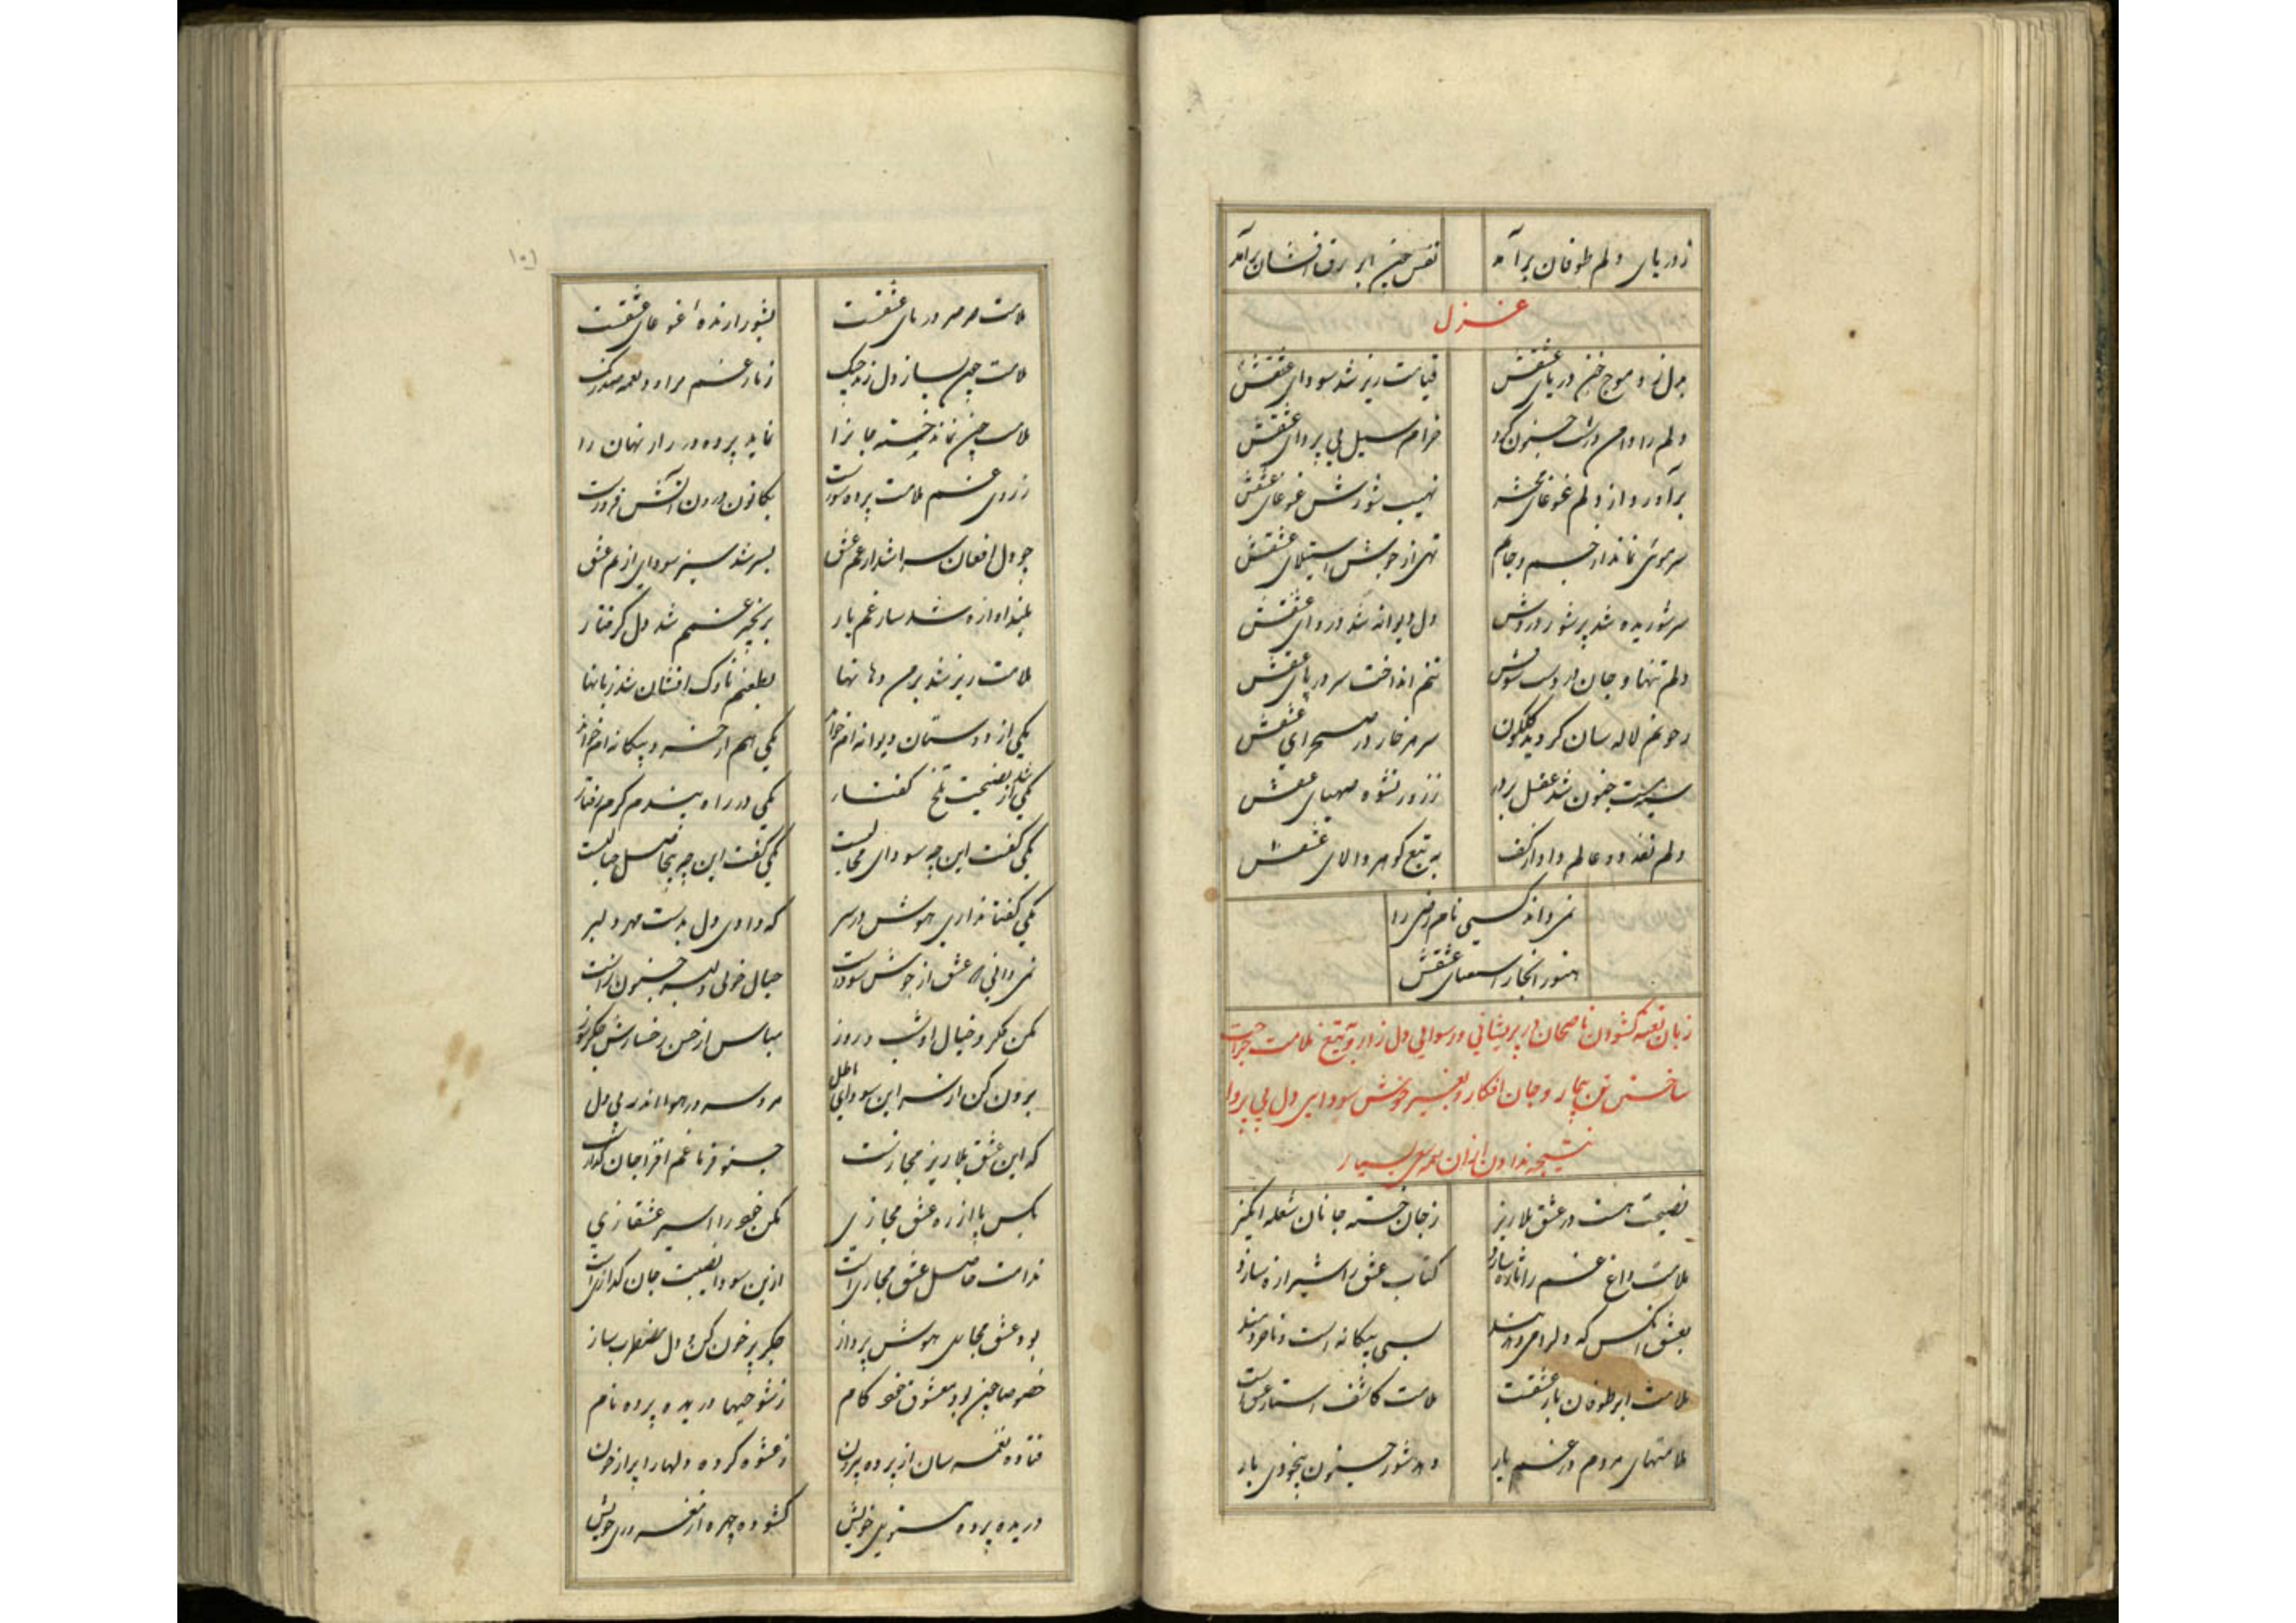 ز دریای دلم طوفان برآمد نفس چون ابر برق افشان برآمد
غزل
بدل زد موج خون دریای عشقش قیامت ریز شد سودای عشقش
دلم را دامن دشت جنون کرد خرام سیل بی پروای عشقش
برآورد از دلم غوغای محشر نهیب شورش غوغای عشقش
سر موئی نماند از جسم و جانم تهی از جوش استیلای عشقش
سر شوریده شد پرشور دردش دل دیوانه شد دردای عشقش
دلم تنها و جان در دست تنم انداخت سر در پای عشقش
ز خونم لاله سان گردید گلگون سر هر خار در صحرای عشقش
سیه مست جنون شد عقل ز زور نشوه صهبای عشقش
دلم نقد دو عالم داد از کف به تیغ گوهر والای عشقش
نمی داند کسی نام را
هنوز انجا عشقش
زبان نعمه گشودن ناصحان در پریشانی و رسوایی دل زار و به تیغ ملامت جراحت
ساختن تن بیمار و جان افکار و سودایی دل بی پروا
نتیجه ندادن از ان بسیار
نصیحت هست در عشق بلاریز ز جان خسته جانان شعله انگیز
ملامت داغ غم را تازه سازد کتاب عشق را شیرازه سازد
بعشق انکس که بسی بیگانه است و
ملامت ابر طوفان بار عشقست ملامت کاشف استار عشق است
ملامتهای مردم در غم یار دهد شور جنون بیخودی بار
ملامت صرصر دریای عشقست بشور ارنده غوغای عشقست
ملامت چون بساز دل زند چنک ز تار غم برارد نغمه صد رنگ
ملامت چون نماند خسته جانرا نماید پرده در راز نهان را
ز روی غم ملامت پرده سوزست بکانون درون آتش فروزست
چو دل افغان سرا شد از غم عشق بسر شد سبز سودای از نم عشق
بلند اوازه شد ساز غم یار بزنجیر غم شد دل گرفتار
ملامت ریز شد بر من دهانها بطعنم ناوک افشان شد زبانها
یکی از دوستان دیوانه ام خواند یکی هم از خرد بیگانه ام خواند
یکی شد از نصیحت تلخ گفتار یکی در راه پندم گرم رفتار
یکی گفت این چه سودای محالست یکی گفت این چه بیحاصل خیالست
یکی گفتا نداری هوش در سر که دادی دل بدست مهر دلبر
نمی دانی که عشق از جوش سوداست خیال جنون زاست
مکن فکر و خیال او شب و روز مباش از حسن رخسارش جگرسوز
برون کن از سر این سودای باطل مرو سر در هوا اندر پی دل
که این عشق بلاریز مجازست جنون فزا غم افزا جان گدازست
بکش پا از ره عشق مجازی مکن خود را اسیر عشقبازی
ندامت حاصل عشق مجازی است ازین سودا نصیبت جان گدازی است
بود عشق مجازی هوش پرداز جگر پر خون کن و دل مضطرب ساز
خصوصا چون بود معشوق خود کام ز شوخیها دریده پرده نام
فتاده نغمه سان از پرده بیرون ز عشوه کرده دلها را پر از خون
دریده پرده مستوری خویش گشوده چهره از خویش